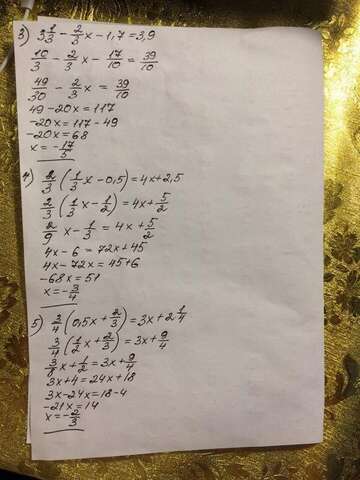 3) 3 1/3 - 2/3 x - 1,7 = 3,9
10/3 - 2/3 x - 17/10 = 39/10
49/30 - 2/3 x = 39/10
49 - 20x = 117
-20x = 117 - 49
-20x = 68
x = -17/5
4) 2/3 (1/3 x - 0,5) = 4x + 2,5
2/3 (1/3 x - 1/2) = 4x + 5/2
2/9 x - 1/3 = 4x + 5/2
4x - 6 = 72x + 45
4x - 72x = 45 + 6
-68x = 51
x = -3/4
5) 3/4 (0,5x + 2/3) = 3x + 2 1/4
3/4 (1/2 x + 2/3) = 3x + 9/4
3/8 x + 1/2 = 3x + 9/4
3x + 4 = 24x + 18
3x - 24x = 18 - 4
-21x = 14
x = -2/3